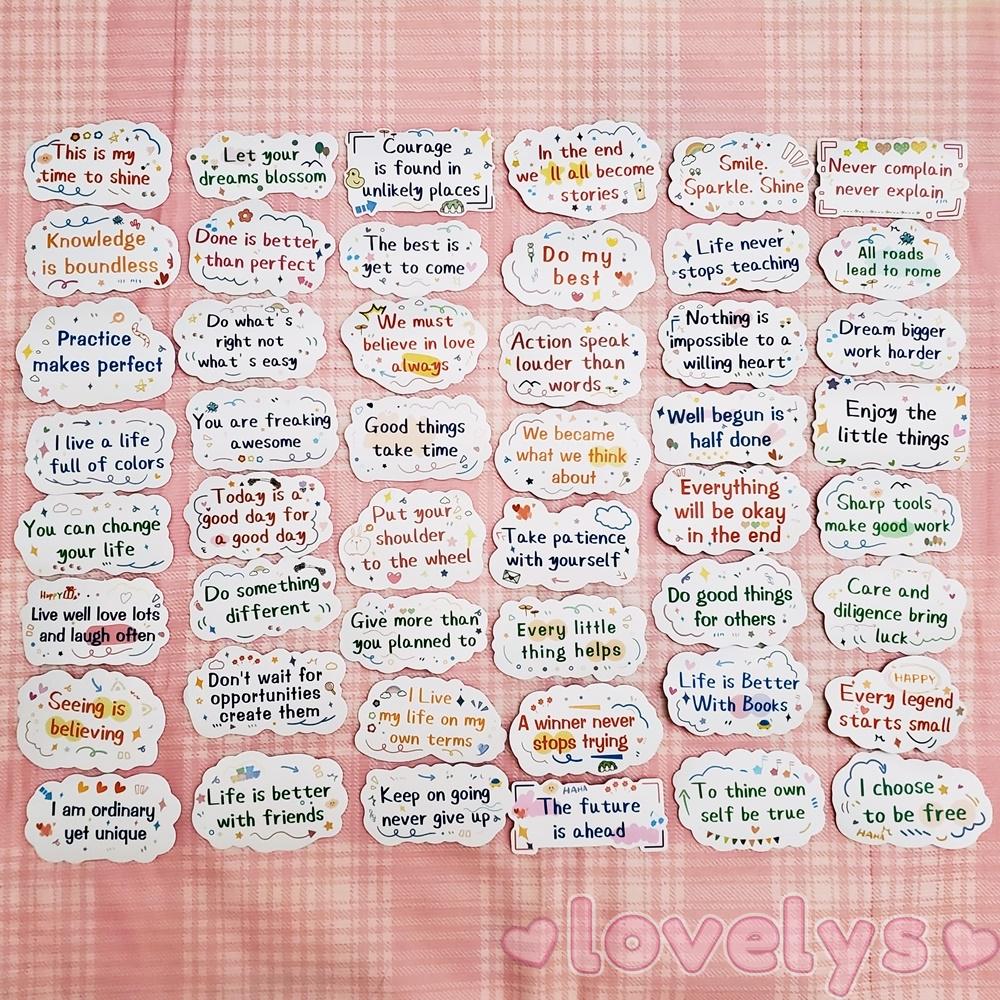 This is my
time to shine
Let your
dreams blossom
Courage
is found in
unlikely places
In the end
we'll all become
stories
Smile.
Sparkle. Shine
Never complain
never explain
Knowledge
is boundless
Done is better
than perfect
The best is
yet to come
Do my
best
Life never
stops teaching
All roads
lead to rome
Practice
makes perfect
Do what's
right not
what's easy
We must
believe in love
always
Action speak
louder than
words
Nothing is
impossible to a
willing heart
Dream bigger
work harder
I live a life
full of colors
You are freaking
awesome
Good things
take time
We became
what we think
about
Well begun is
half done
Enjoy the
little things
You can change
your life
Today is a
good day for
a good day
Put your
shoulder
to the wheel
Take patience
with yourself
Everything
will be okay
in the end
Sharp tools
make good work
Happy
Live well love lots
and laugh often
Do something
different
Give more than
you planned to
Every little
thing helps
Do good things
for others
Care and
diligence bring
luck
Seeing is
believing
Don't wait for
opportunities
create them
I Live
my life on my
own terms
A winner never
stops trying
Life is Better
With Books
HAPPY
Every legend
starts small
I am ordinary
yet unique
Life is better
with friends
Keep on going
never give up
HAHA
The future
is ahead
To thine own
self be true
I choose
to be free
HAHA
lovelys